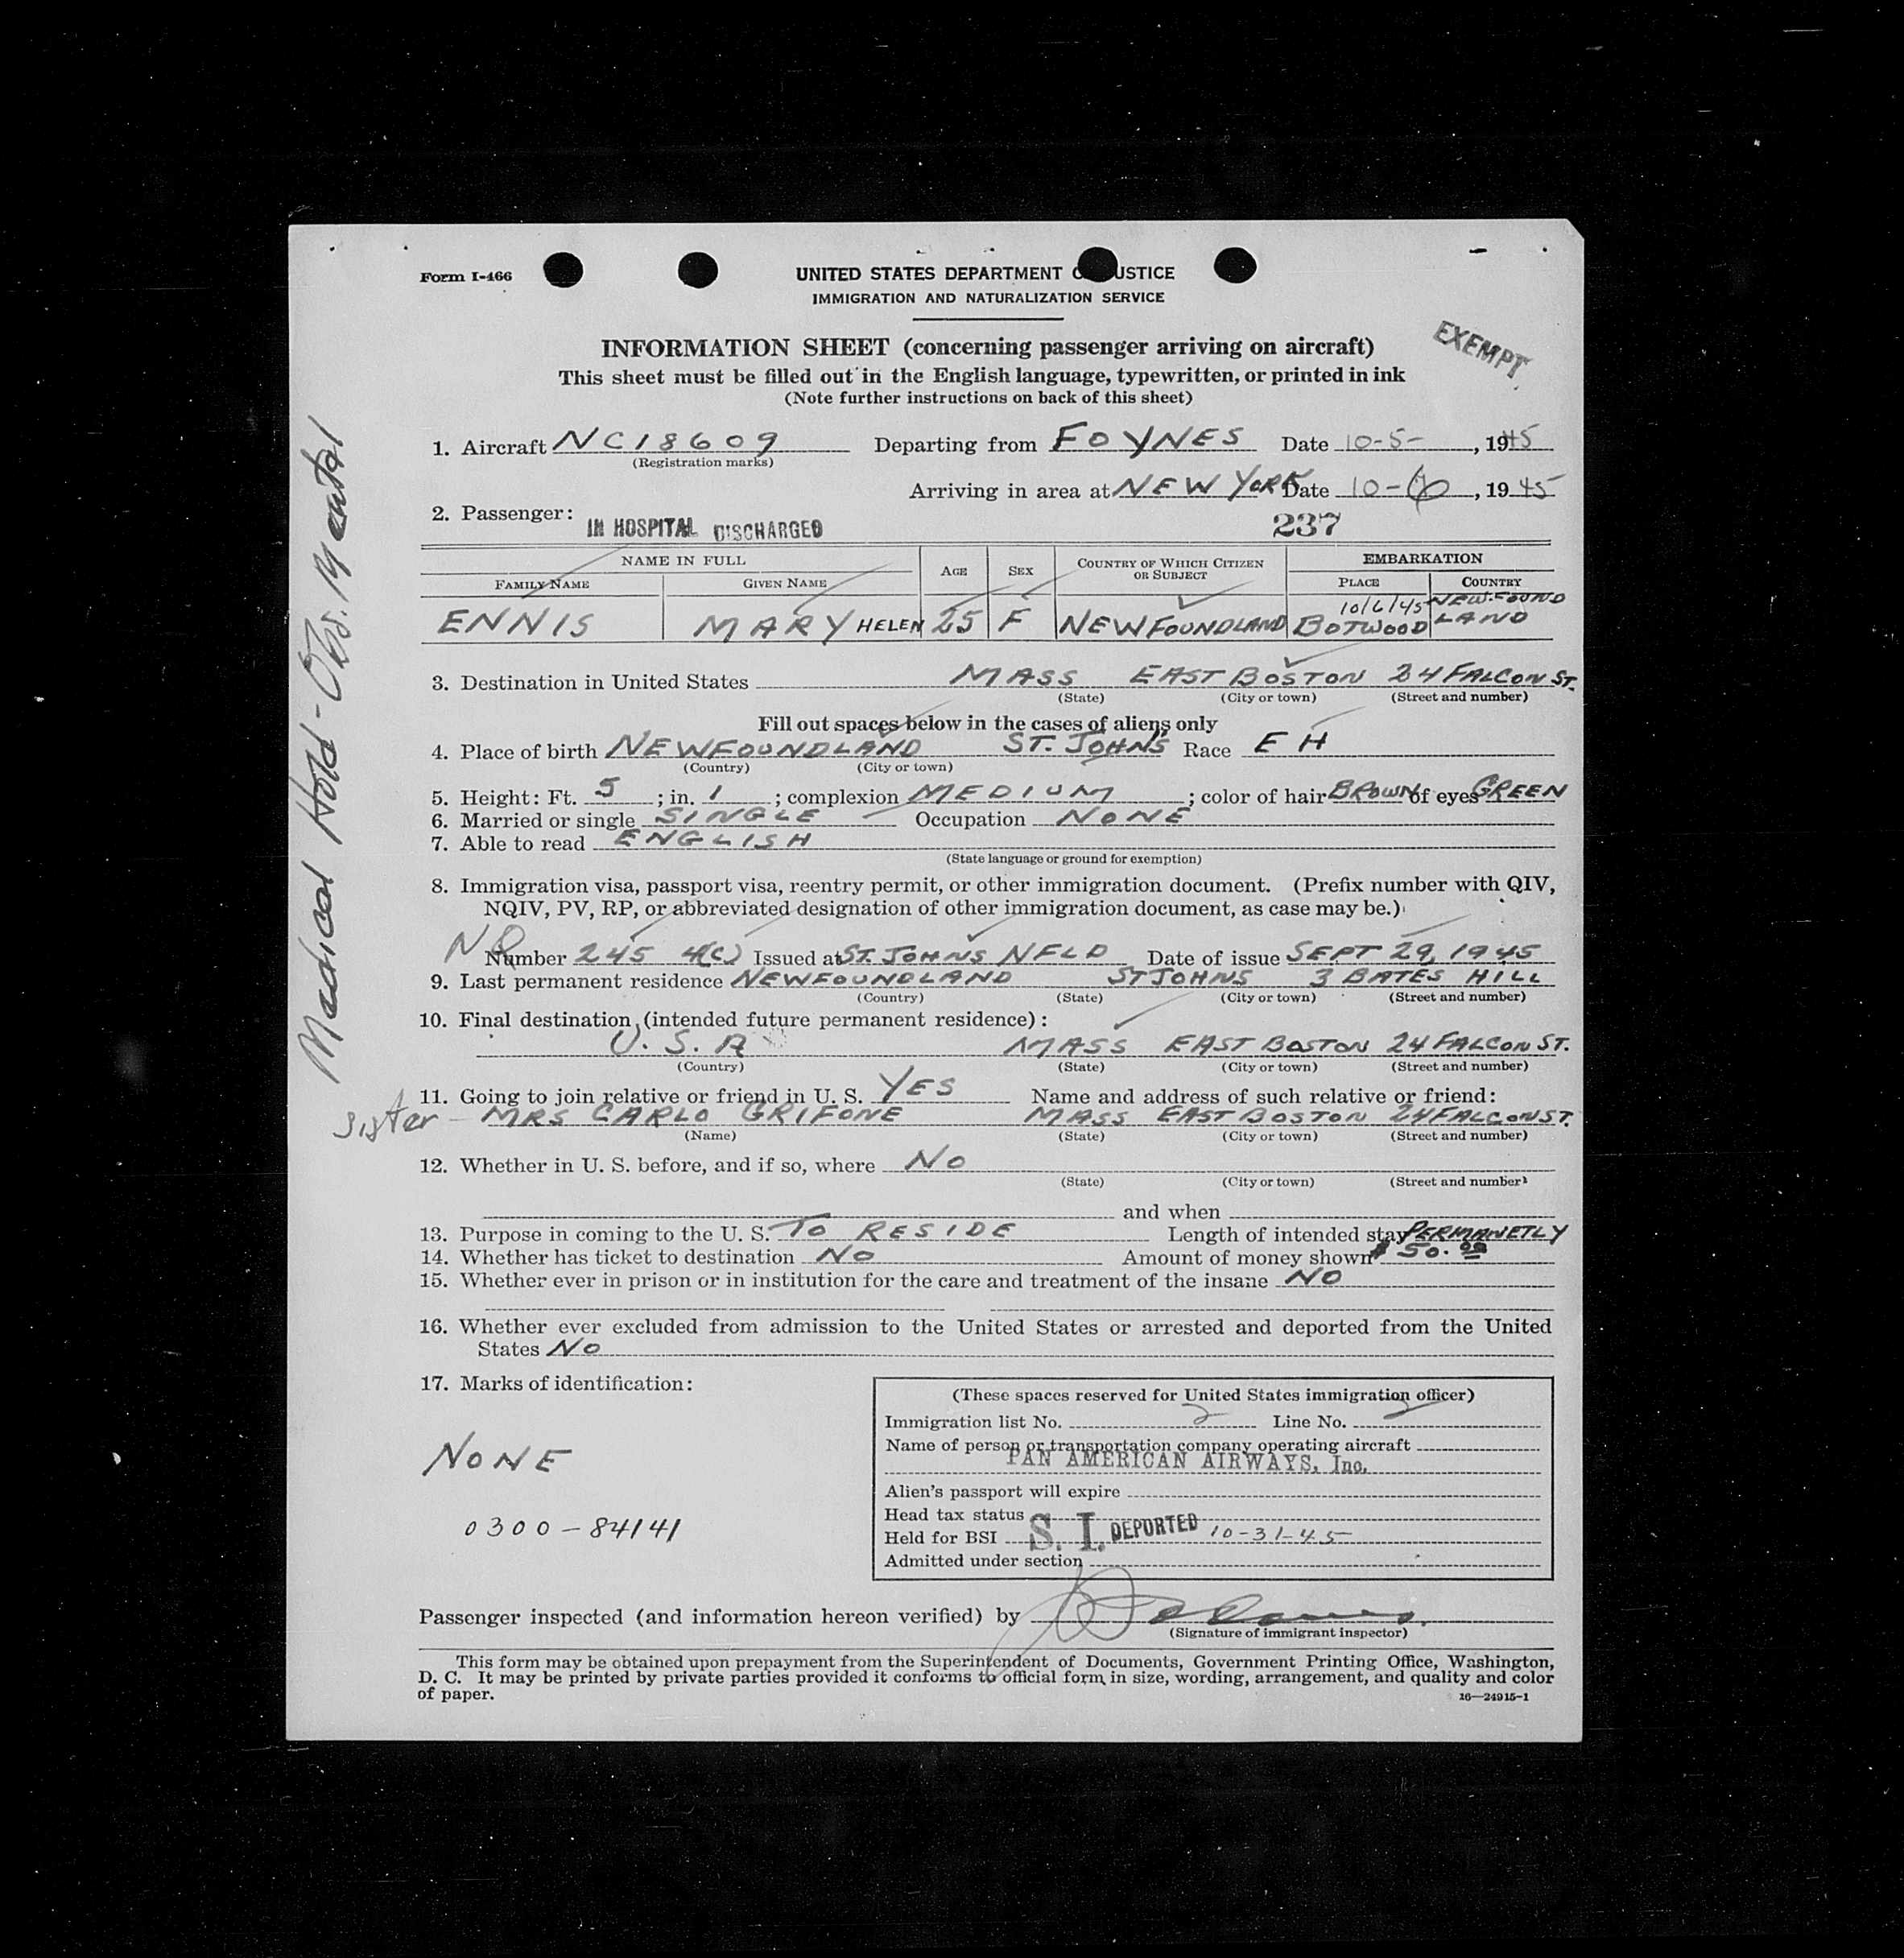 Form I-466
UNITED STATES DEPARTMENT O USTICE
IMMIGRATION AND NATURALIZATION SERVICE
INFORMATION SHEET (concerning passenger arriving on aircraft)
EXEMPT
This sheet must be filled out in the English language, typewritten, or printed in ink
(Note further instructions on back of this sheet)
1. Aircraft NC18609 Departing from FOYNES Date 10-5-, 1945
(Registration marks)
Arriving in area at NEW YORK Date 10-6, 1945
2. Passenger: IN HOSPITAL DISCHARGED 237
NAME IN FULL AGE SEX COUNTRY OF WHICH CITIZEN OR SUBJECT EMBARKATION
FAMILY NAME GIVEN NAME PLACE COUNTRY
10/6/45 NEW-FOUND
ENNIS MARY HELEN 25 F NEWFOUNDLAND BOTWOOD LAND
3. Destination in United States MASS EAST BOSTON 24 FALCON ST.
(State) (City or town) (Street and number)
Fill out spaces below in the cases of aliens only
4. Place of birth NEWFOUNDLAND ST. JOHNS Race EH
(Country) (City or town)
5. Height: Ft. 5; in. 1; complexion MEDIUM; color of hair BROWN of eyes GREEN
6. Married or single SINGLE Occupation NONE
7. Able to read ENGLISH
(State language or ground for exemption)
8. Immigration visa, passport visa, reentry permit, or other immigration document. (Prefix number with QIV,
NQIV, PV, RP, or abbreviated designation of other immigration document, as case may be.)
NQ Number 245 4(C) Issued at ST. JOHNS NFLD Date of issue SEPT 29, 1945
9. Last permanent residence NEWFOUNDLAND ST JOHNS 3 BATES HILL
(Country) (State) (City or town) (Street and number)
10. Final destination (intended future permanent residence):
U.S.A MASS EAST BOSTON 24 FALCON ST.
(Country) (State) (City or town) (Street and number)
11. Going to join relative or friend in U. S. YES Name and address of such relative or friend:
sister - MRS CARLO GRIFONE MASS EAST BOSTON 24 FALCON ST.
(Name) (State) (City or town) (Street and number)
12. Whether in U. S. before, and if so, where NO
(State) (City or town) (Street and number)
and when
13. Purpose in coming to the U. S. TO RESIDE Length of intended stay PERMANETLY
14. Whether has ticket to destination NO Amount of money shown $50.00
15. Whether ever in prison or in institution for the care and treatment of the insane NO
16. Whether ever excluded from admission to the United States or arrested and deported from the United
States NO
17. Marks of identification:
NONE
0300-84141
(These spaces reserved for United States immigration officer)
Immigration list No. 2 Line No. 2
Name of person or transportation company operating aircraft
PAN AMERICAN AIRWAYS, Inc.
Alien's passport will expire
Head tax status
Held for BSI S. I. DEPORTED 10-31-45
Admitted under section
Passenger inspected (and information hereon verified) by
(Signature of immigrant inspector)
This form may be obtained upon prepayment from the Superintendent of Documents, Government Printing Office, Washington,
D. C. It may be printed by private parties provided it conforms to official form in size, wording, arrangement, and quality and color
of paper.
16—24915-1
Medical Hold - Obs. Mental